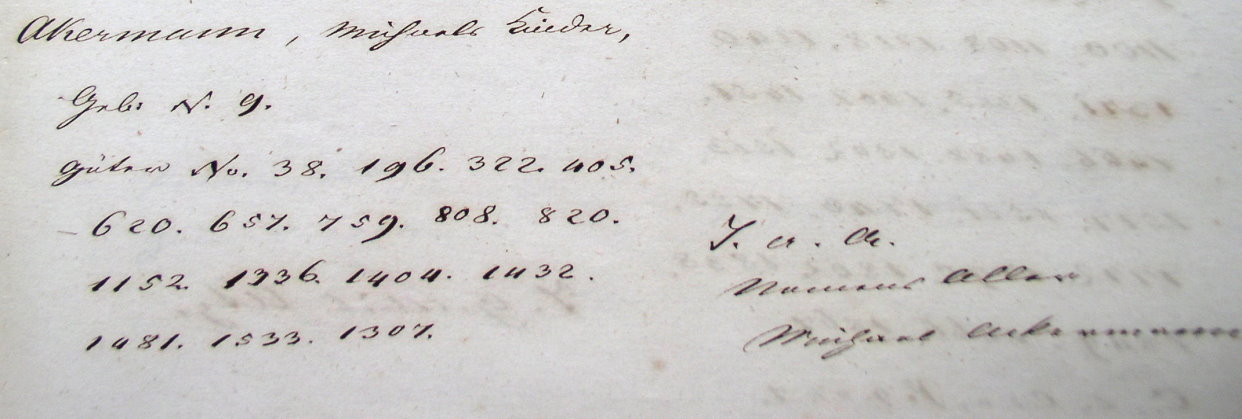 Akermann, Michaels Kinder,
Geb: N. 9.
Güter No. 38. 196. 322. 405.
620. 657. 759. 808. 820.
1152. 1336. 1404. 1432.
1481. 1533. 1307.
T. a. A.
Namens Aller
Michael Ackermann